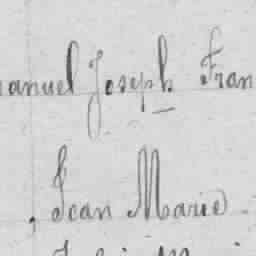 anuel Joseph Fran
, Jean Marie